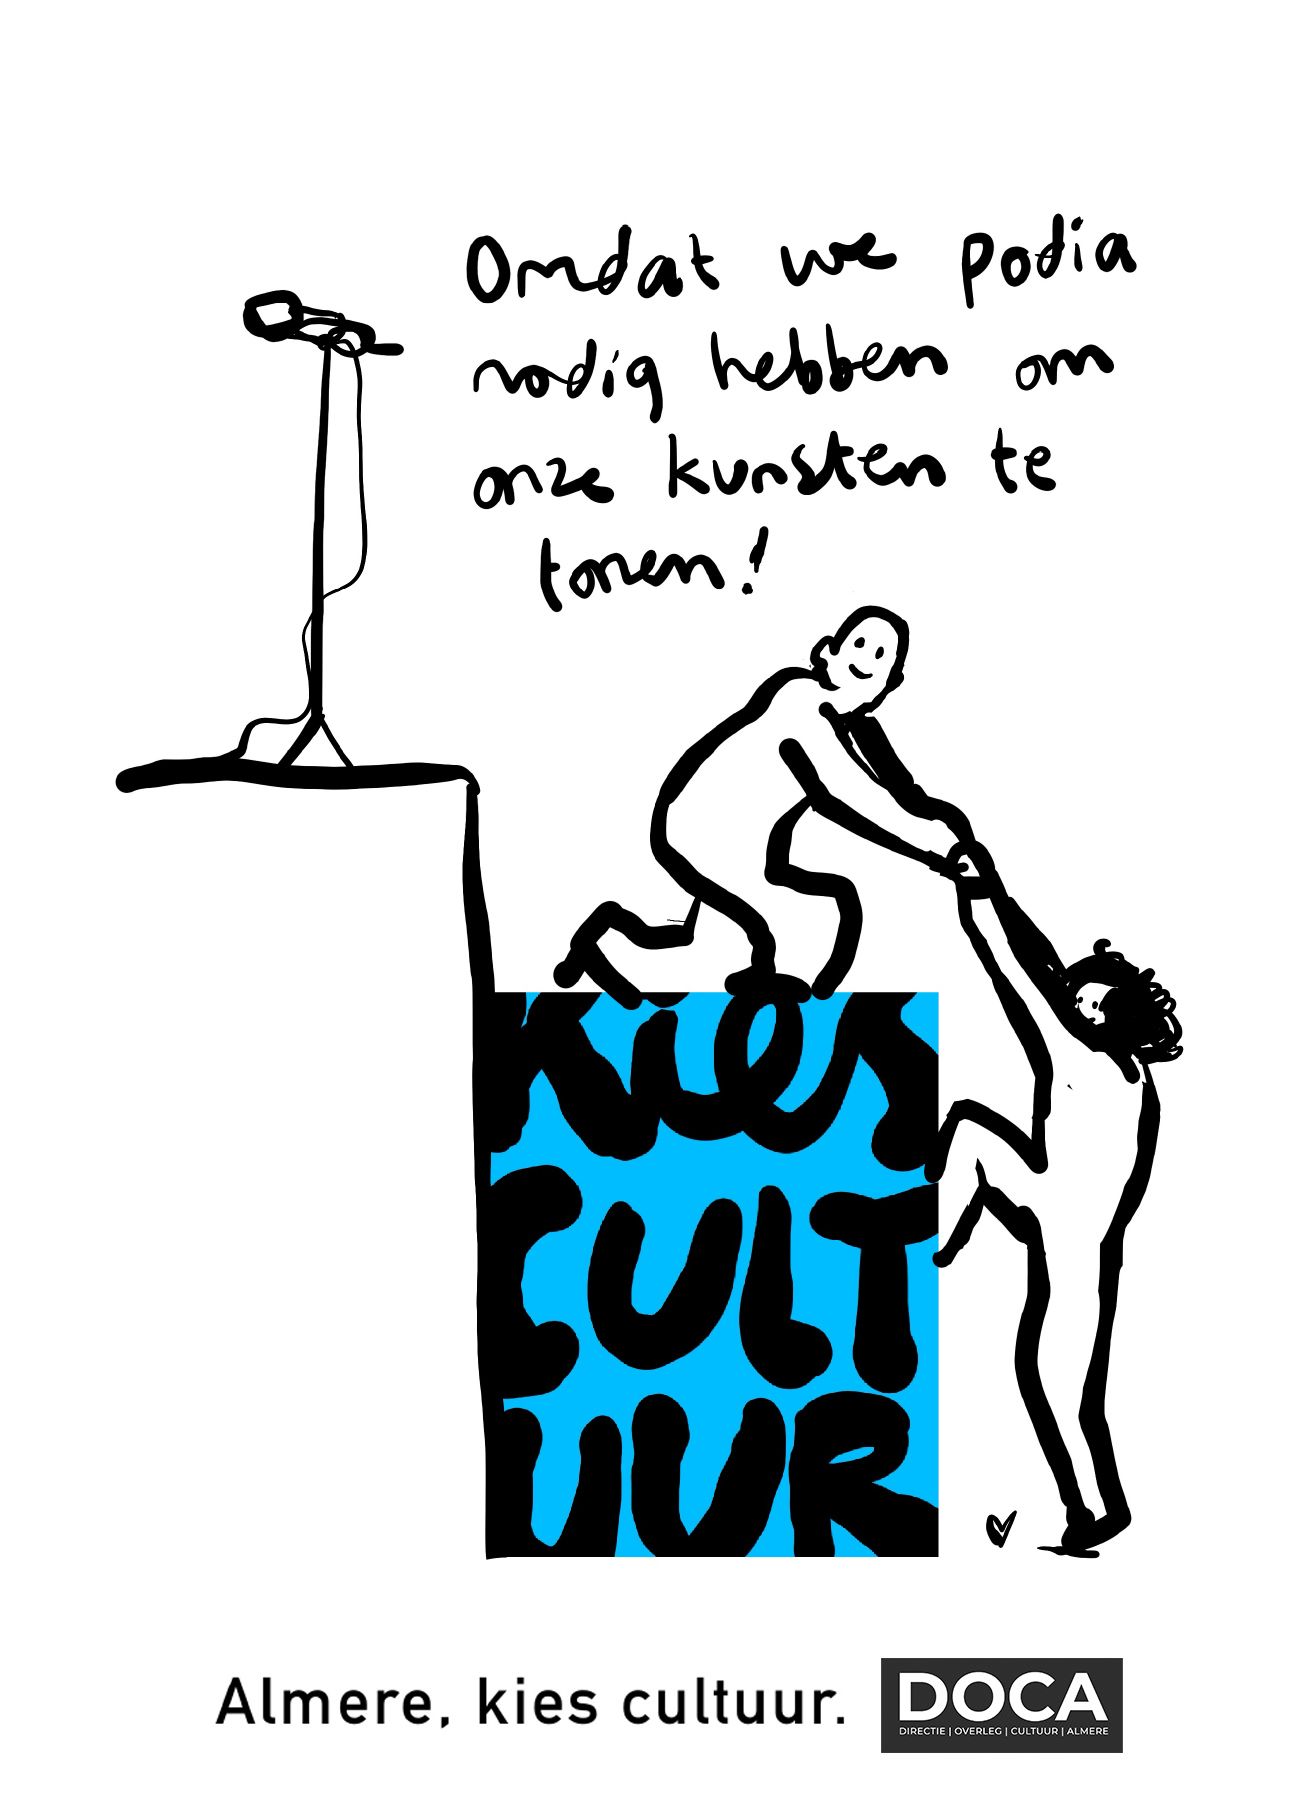 Omdat we podia
nodig hebben om
onze kunsten te
tonen!
Kies
CULT
UUR
Almere, kies cultuur.
DOCA
DIRECTIE | OVERLEG | CULTUUR | ALMERE